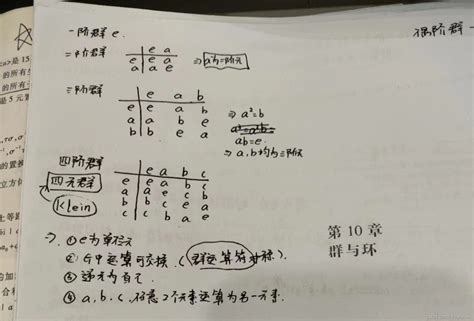 一阶群 e.
偶阶群
二阶群
e a
e e a
a a e
⇒ a为二阶元
三阶群
e a b
e e a b
a a b e
b b e a
⇒ a²=b
ab=e
⇒ a,b均为三阶元
四阶群
四元群
Klein
e a b c
e e a b c
a a e c b
b b c e a
c c b a e
⇒ ①e为单位元
②G中运算可交换.(群运算符对称).
③逆元为自己.
④a,b,c,任意2个元素运算为另一元素.
第 10 章
群与环